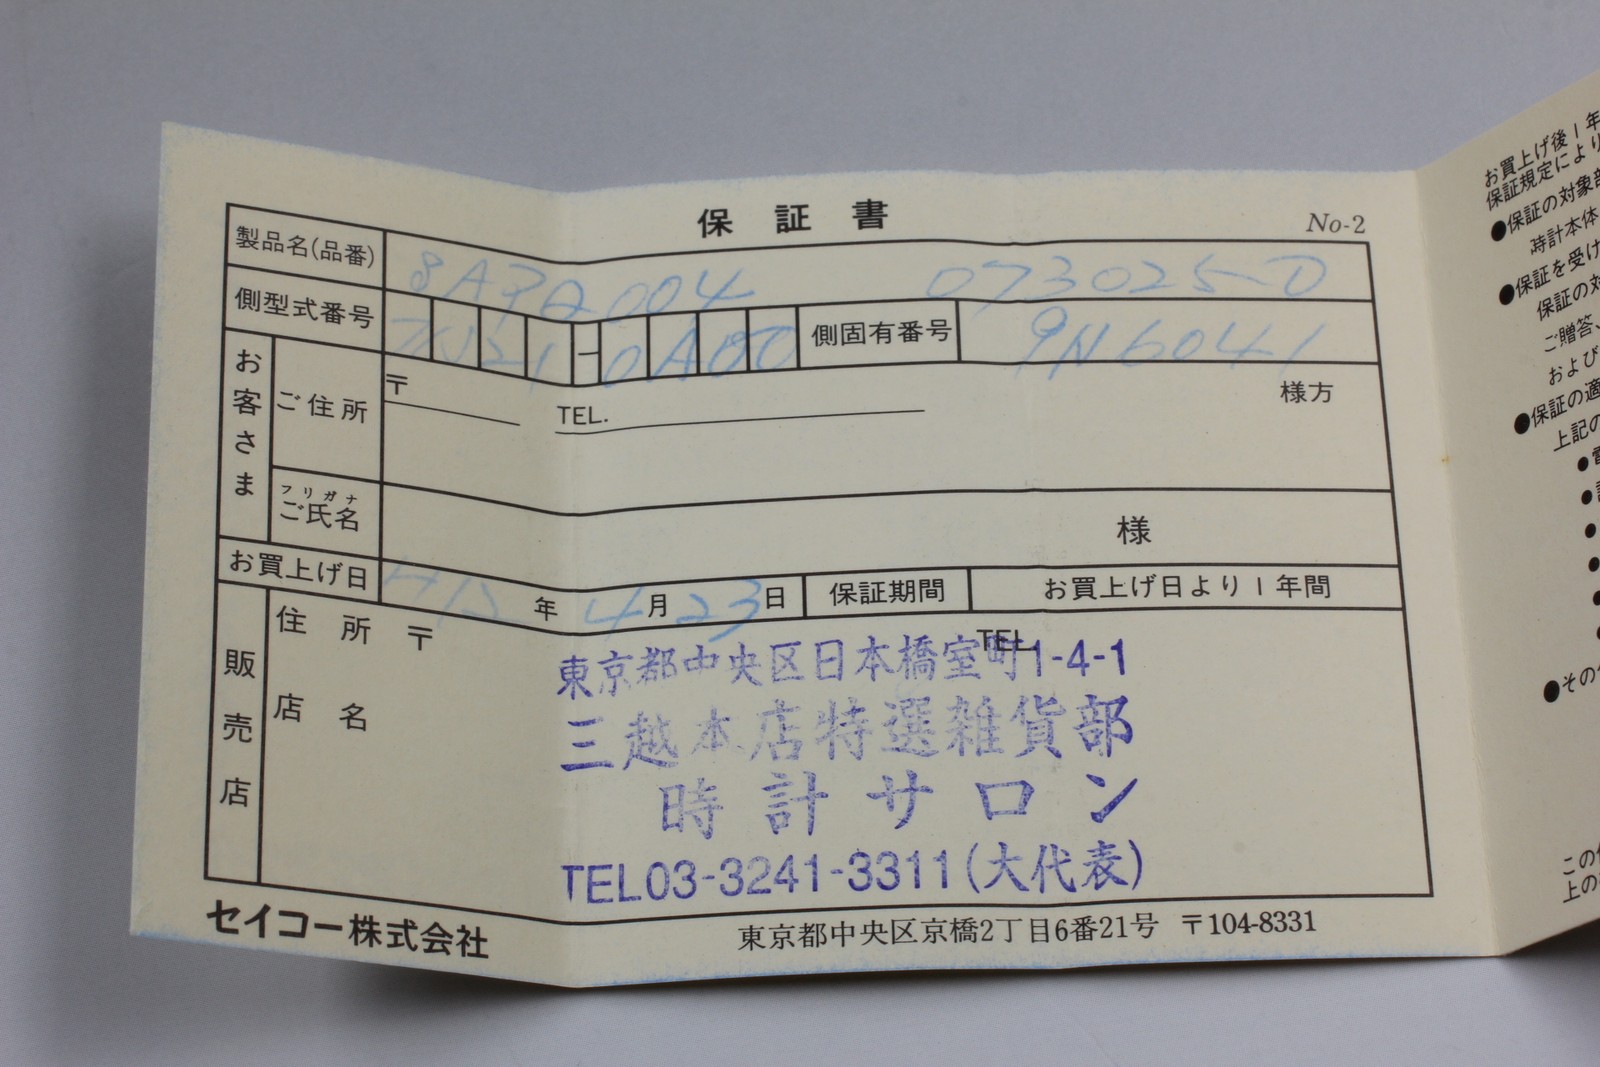 保証書
No-2
製品名(品番) 073025-0
側型式番号 7N21-0AB0 側固有番号 9N6041
お客さま
ご住所 〒 TEL. 様方
フリガナ
ご氏名 様
お買上げ日 H12年 4月 23日 保証期間 お買上げ日より1年間
販売店
住所 〒 TEL
東京都中央区日本橋室町1-4-1
店名
三越本店特選雑貨部
時計サロン
TEL03-3241-3311(大代表)
セイコー株式会社 東京都中央区京橋2丁目6番21号 〒104-8331
お買上げ後1年
保証規定により
●保証の対象部
時計本体
●保証を受け
保証の対
ご贈答、
および
●保証の適
上記の
●その
この
上の